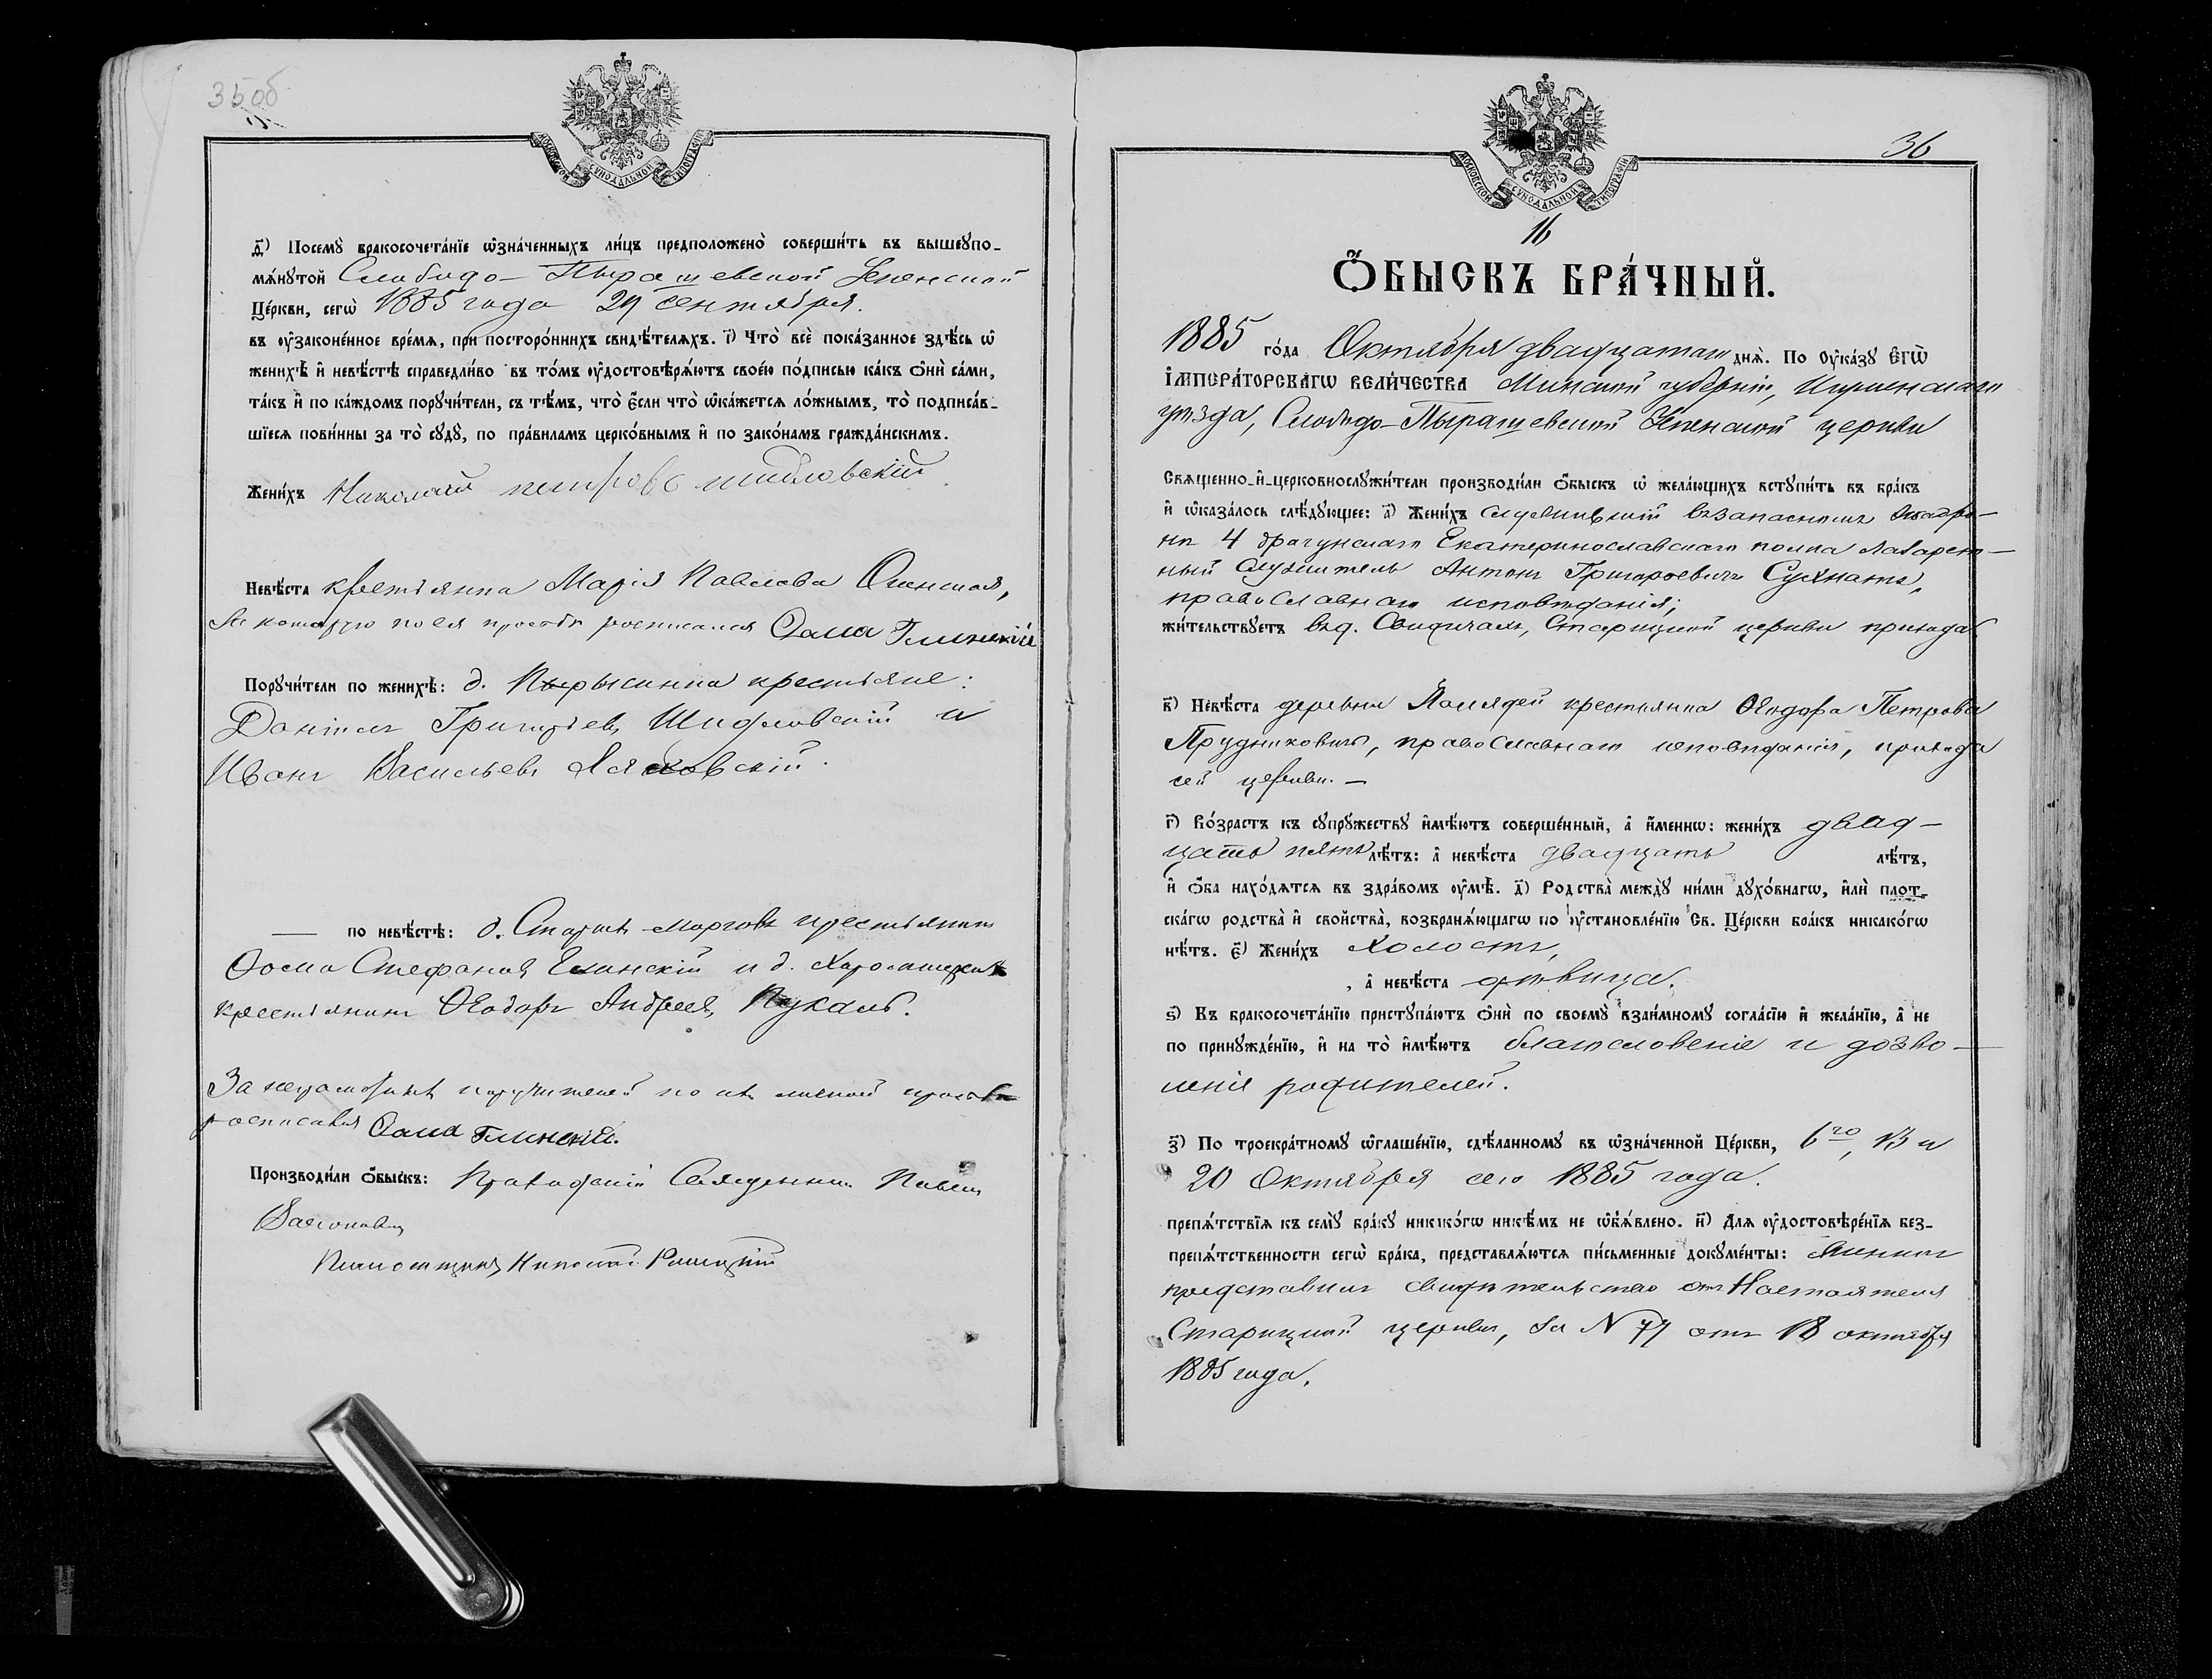 35об
МОСКОВСКОЙ СѴНОДАЛЬНОЙ ТИПОГРАФІИ
д҃) Посемꙋ бракосочета́нїе ѡ҆зна́ченныхъ ли́цъ предположено̀ соверши́ть въ вышеꙋпо-
мѧ́нꙋтой Слободо-Пырашевской Успенской
Це́ркви, сегѡ̀ 1885 года 29 сентября.
въ ᲂу҆законе́нное вре́мѧ, при посторо́ннихъ свидѣ́телѧхъ. і҃) Что̀ всѐ пока́занное здѣ́сь ѡ҆
женихѣ̀ и҆ невѣ́стѣ справедли́во въ то́мъ ᲂу҆достовѣрѧ́ютъ свое́ю по́дписью ка́къ ѻ҆нѝ са́ми,
та́къ и҆ по ка́ждомъ порꙋчи́тели, съ тѣ́мъ, что̀ є҆́сли что̀ ѡ҆ка́жетсѧ ло́жнымъ, то̀ подписа́в-
шїесѧ пови́нны за то̀ сꙋдꙋ̀, по пра́виламъ церко́внымъ и҆ по зако́намъ гражда́нскимъ.
Жени́хъ Николай петровъ шидловскій
Невѣ́ста крестьянка Марія Павлова
за которую по ея просьбѣ росписался Ѳома Глинскій
Порꙋчи́тели по женихѣ̀: д. крестьяне:
Даніилъ Григорьевъ Шидловскій и
Иванъ Васильевъ
по невѣ́стѣ: д. крестьянинъ
Ѳома Стефановъ Глинскій и д.
крестьянинъ Ѳеодоръ Андреевъ Пукаль.
За неграмотныхъ поручителей по ихъ личной просьбѣ
росписался Ѳома Глинскій.
Производи́ли ѻ҆́быскъ: Приходскій Священникъ Павелъ
Псаломщикъ Николай
36
МОСКОВСКОЙ СѴНОДАЛЬНОЙ ТИПОГРАФІИ
16
Ѻ҆́БЫСКЪ БРА́ЧНЫЙ.
1885 го́да Октября двадцатаго днѧ̀. По ᲂу҆ка́зꙋ Є҆гѡ̀
І҆МПЕРА́ТОРСКАГѠ ВЕЛИ́ЧЕСТВА Минской губерніи, Игуменскаго
уѣзда, Слободо-Пырашевской Успенской церкви
Свѧще́нно-и҆-церковнослꙋжи́тели производи́ли ѻ҆́быскъ ѡ҆ жела́ющихъ встꙋпи́ть въ бра́къ
и҆ ѡ҆каза́лось слѣ́дꙋющее: а҃) Жени́хъ служившій въ запасномъ эскадро-
нѣ 4 драгунскаго Екатеринославскаго полка лазарет-
ный служитель Антонъ Григорьевичъ
православнаго исповѣданія;
жи́тельствꙋетъ въ д. Старицкой церкви прихода
в҃) Невѣ́ста деревни крестьянка Ѳеодора Петрова
Прудниковичъ, православнаго исповѣданія, прихода
сей церкви. —
г҃) Во́зрастъ къ сꙋпрꙋ́жествꙋ и҆мѣ́ютъ соверше́нный, а҆ и҆́меннѡ: жени́хъ двад-
цать пять лѣ́тъ: а҆ невѣ́ста двадцать лѣ́тъ,
и҆ ѻ҆́ба нахо́дѧтсѧ въ здра́вомъ ᲂу҆мѣ̀. д҃) Родства̀ междꙋ̀ ни́ми дꙋхо́внагѡ, и҆лѝ плот-
ска́гѡ родства̀ и҆ сво́йства̀, возбранѧ́ющагѡ по ᲂу҆становле́нїю Св. Це́ркви бра́къ никако́гѡ
нѣ́тъ. є҃) Жени́хъ холостъ,
, а҆ невѣ́ста дѣвица.
ѕ҃) Къ бракосочета́нїю пристꙋпа́ютъ ѻ҆нѝ по своемꙋ̀ взаи́мномꙋ согла́сїю и҆ жела́нїю, а҆ не
по принꙋжде́нїю, и҆ на то̀ и҆мѣ́ютъ благословеніе и дозво-
леніе родителей.
з҃) По троекра́тномꙋ ѡ҆глаше́нїю, сдѣ́ланномꙋ въ ѡ҆зна́ченной Це́ркви, 6го, 13 и
20 Октября сего 1885 года.
препѧ́тствїѧ къ семꙋ̀ бра́кꙋ никако́гѡ никѣ́мъ не ѡ҆б̾ѧ́влено. и҃) Длѧ ᲂу҆достовѣре́нїѧ без-
препѧ́тственности сегѡ̀ бра́ка, представлѧ́ютсѧ пи́сьменные докꙋме́нты: Женихъ
представилъ свидѣтельство отъ Настоятеля
Старицкой церкви, за N 77 отъ 18 октября
1885 года.